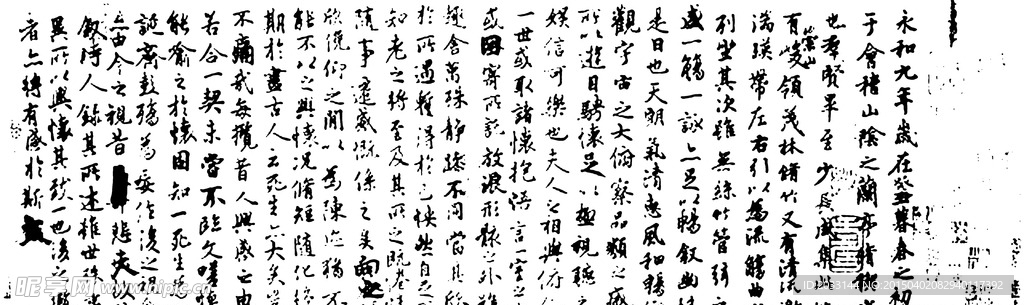 永和九年歲在癸丑暮春之初
于會稽山陰之蘭亭脩禊
也羣賢畢至少長咸集
崇山
有峻領茂林脩竹又有清流激
湍暎帶左右引以為流觴曲
列坐其次雖無絲竹管弦
盛一觴一詠亦足以暢敘幽情
是日也天朗氣清惠風和暢
觀宇宙之大俯察品類之盛
所以遊目騁懷足以極視聽
娛信可樂也夫人之相與俯仰
一世或取諸懷抱悟言一室之
或因寄所託放浪形骸之外雖
趣舍萬殊靜躁不同當其欣
於所遇暫得於己怏然自足
知老之將至及其所之既惓
隨事遷感慨係之矣向之
欣俛仰之閒以為陳迹猶不
能不以之興懷況脩短隨化終
期於盡古人云死生亦大矣
不痛哉每攬昔人興感之由
若合一契未嘗不臨文嗟悼
能喻之於懷固知一死生為
誕齊彭殤為妄作後之
亦由今之視昔悲夫故
敘時人錄其所述雖世殊
異所以興懷其致一也後之攬
者亦將有感於斯文
昵享网